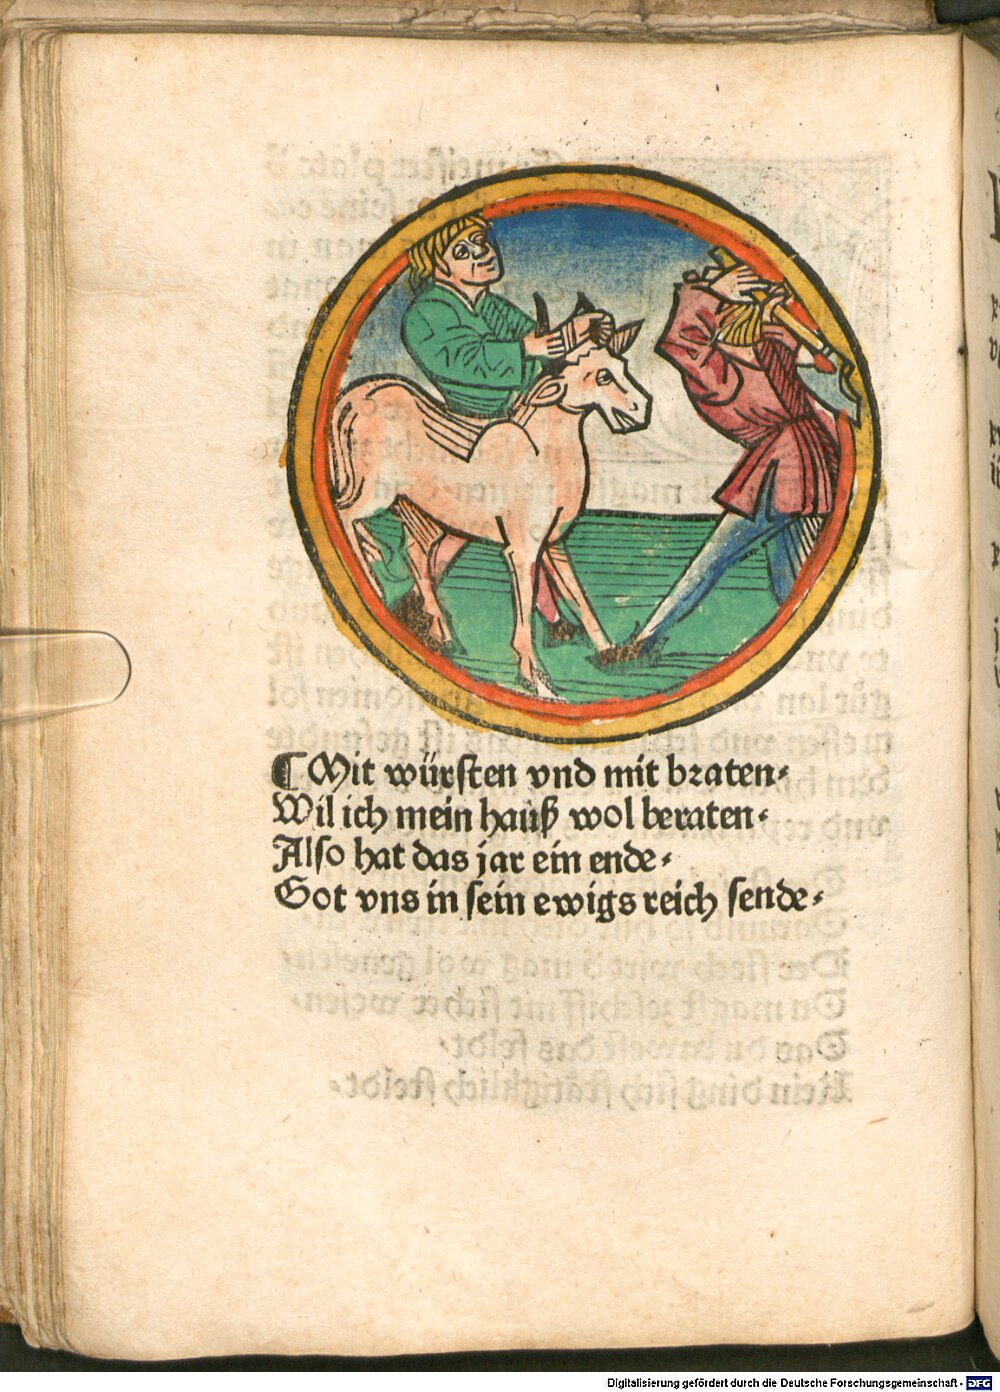 ¶ Mit würsten vnd mit braten⸗
Wil ich mein hauß wol beraten⸗
Also hat das jar ein ende⸗
Got vns in sein ewigs reich sende⸗
Digitalisierung gefördert durch die Deutsche Forschungsgemeinschaft - DFG